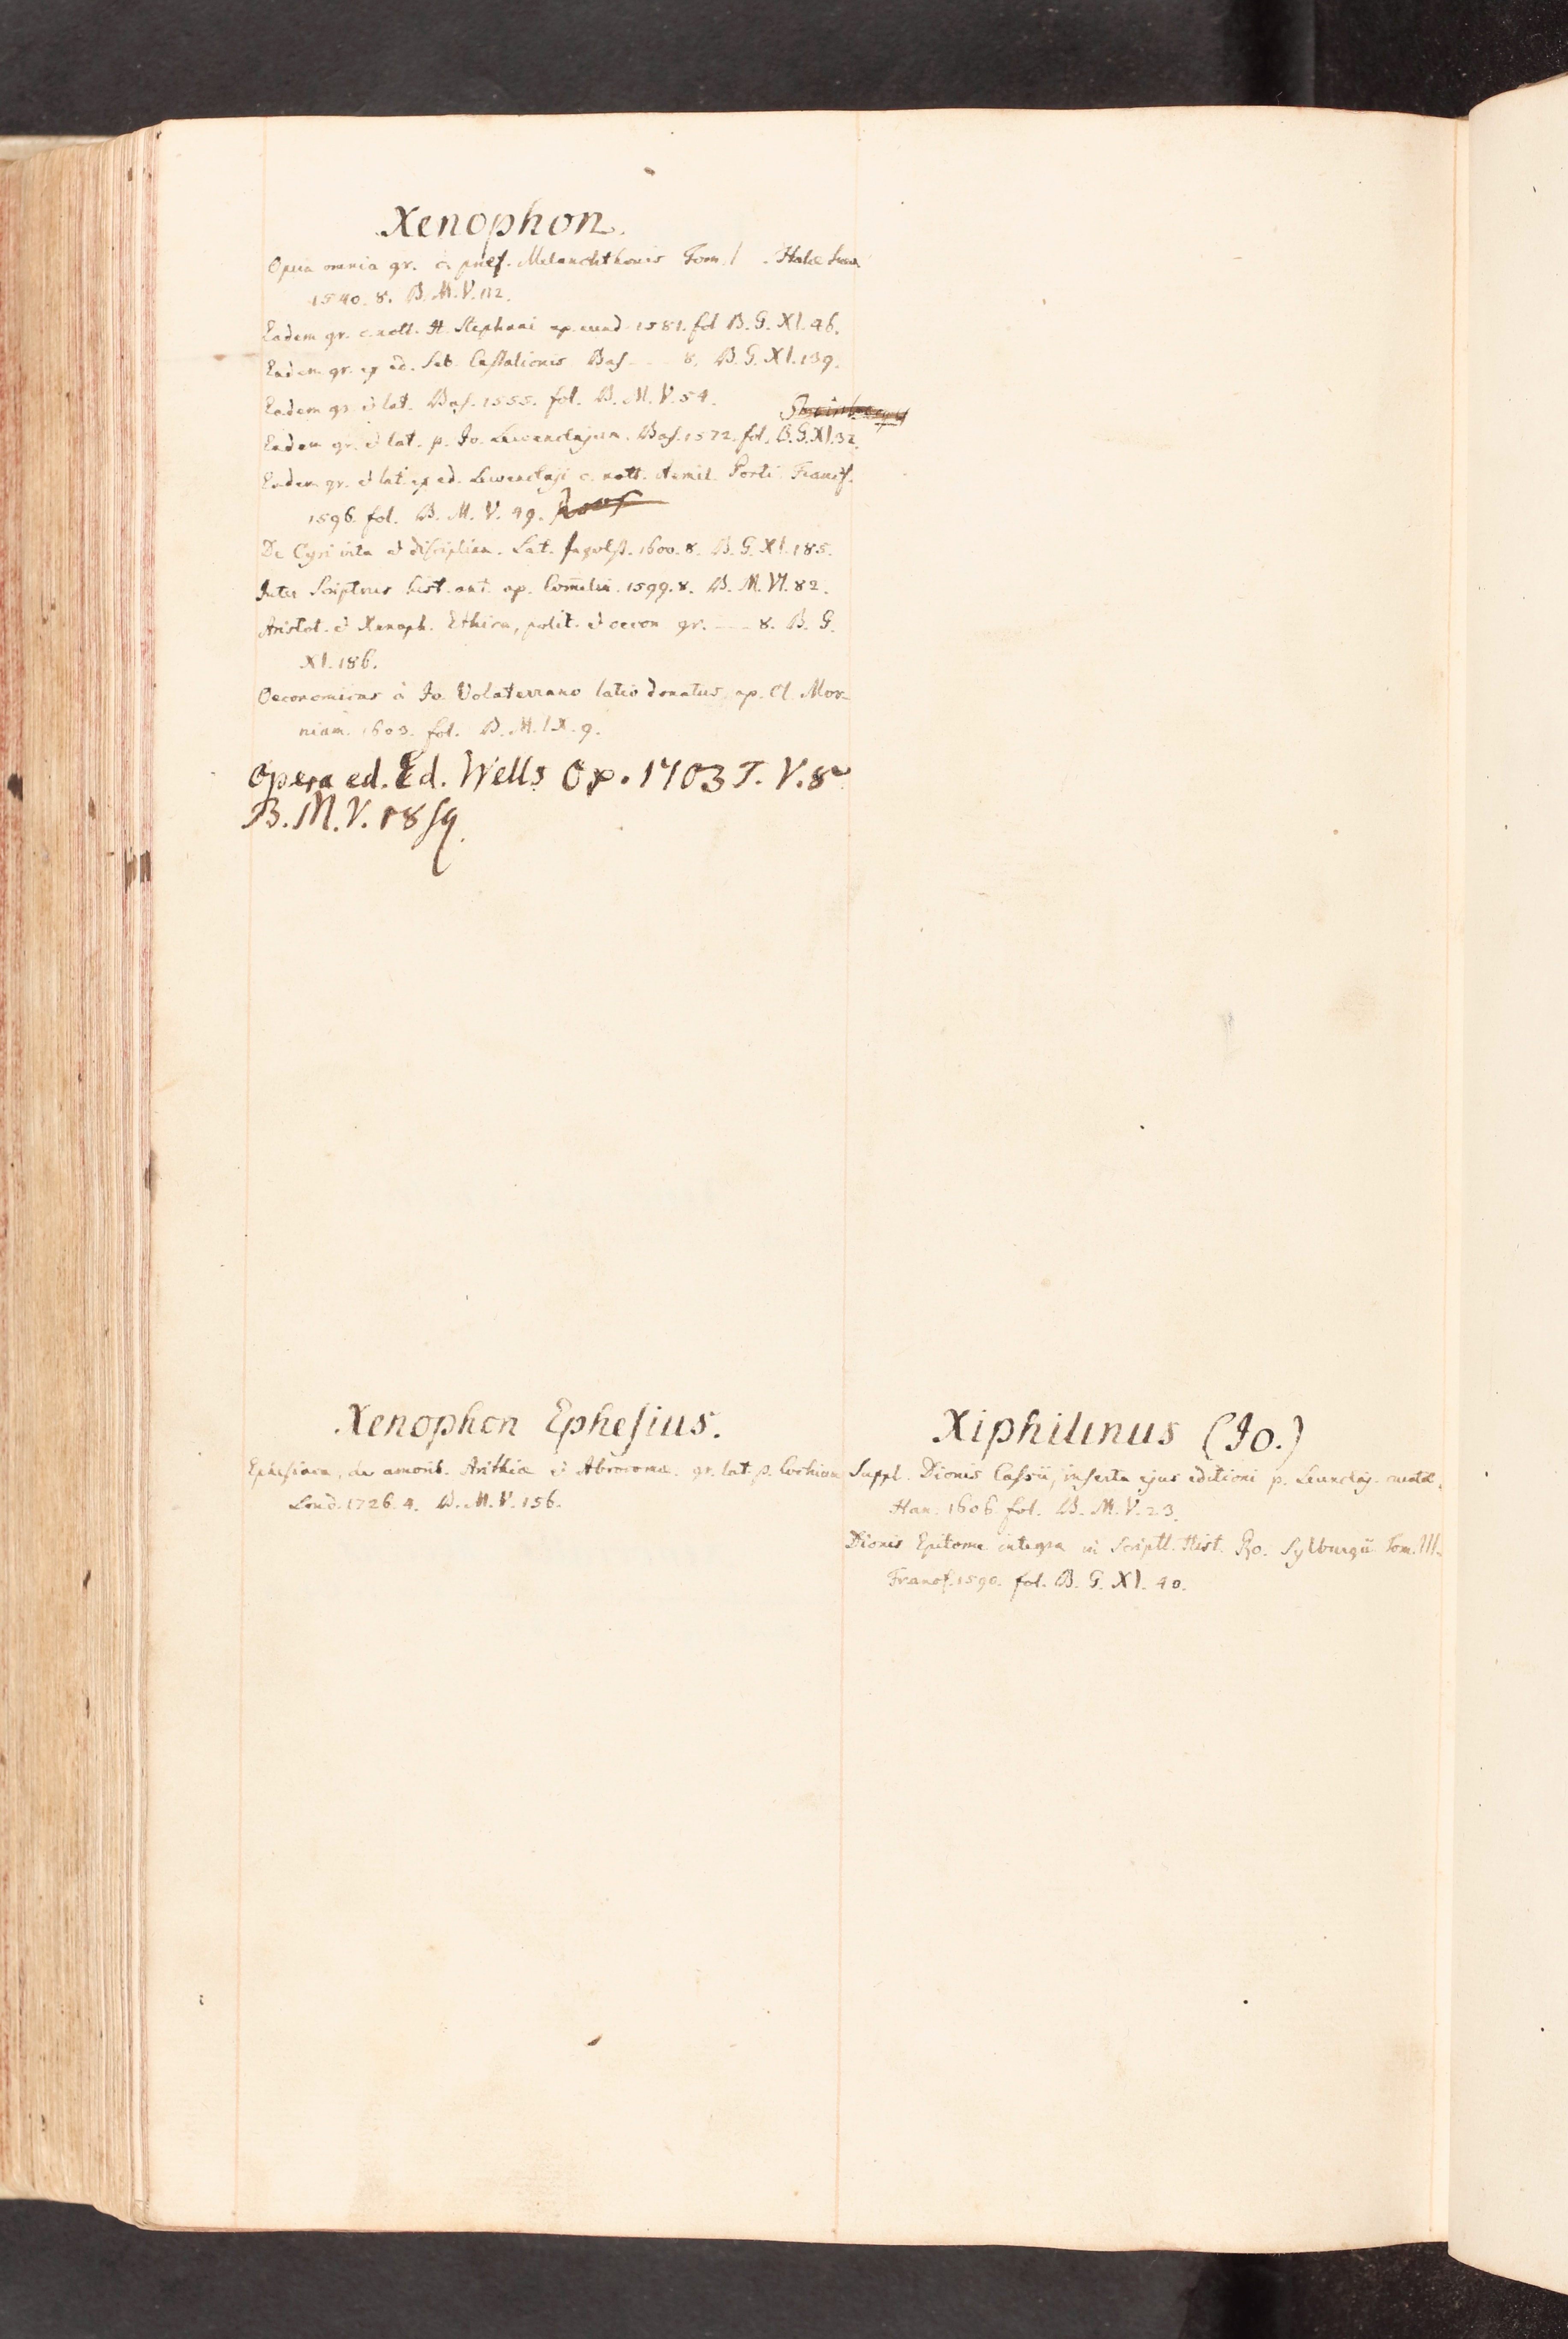 Xenophon.
Opera omnia gr. c. praef. Melanchthonis Tom. I. Halae Suev.
1540. 8. B. M. V. 112.
Eadem gr. c. nott. H. Stephani ap. eund. 1581. fol B. G. XI. 46.
Eadem gr. ex ed. Seb. Castalionis Bas. - - - 8. B. G. XI. 139.
Eadem gr. et lat. Bas. 1555. fol. B. M. V. 54.
Eadem gr. et lat. p. Jo. Lewenclajum. Bas. 1572. fol. B. G. XI. 32.
Eadem gr. et lat. ex ed. Lewenclaji c. nott. Aemil. Porti. Francf.
1596. fol. B. M. V. 49.
De Cyri vita et disciplina. Lat. Ingolst. 1600. 8. B. G. XI. 185.
Inter Scriptores hist. ant. ap. Comelin. 1599. 8. B. M. VI. 82.
Aristot. et Xenoph. Ethica, polit. et oecon gr. - - - 8. B. G.
XI. 186.
Oeconomicus à Jo. Volaterrano latio donatus, ap. Cl. Mar-
nium. 1603. fol. B. M. IX. 9.
Opera ed. Ed. Wells Ox. 1703 T. V. 8º
B. M. V. 18 sq.
Xenophon Ephesius.
Ephesiaca, de amorib. Anthiae et Abrocomae. gr. lat. p. Cochium
Lond. 1726. 4. B. M. V. 156.
Xiphilinus (Jo.)
Suppl. Dionis Cassii, inserta ejus editioni p. Leunclaj.
Han. 1606. fol. B. M. V. 23.
Dionis Epitome integra in Scriptt. Hist. Ro. Sylburgii Tom. III.
Francf. 1590. fol. B. G. XI. 40.